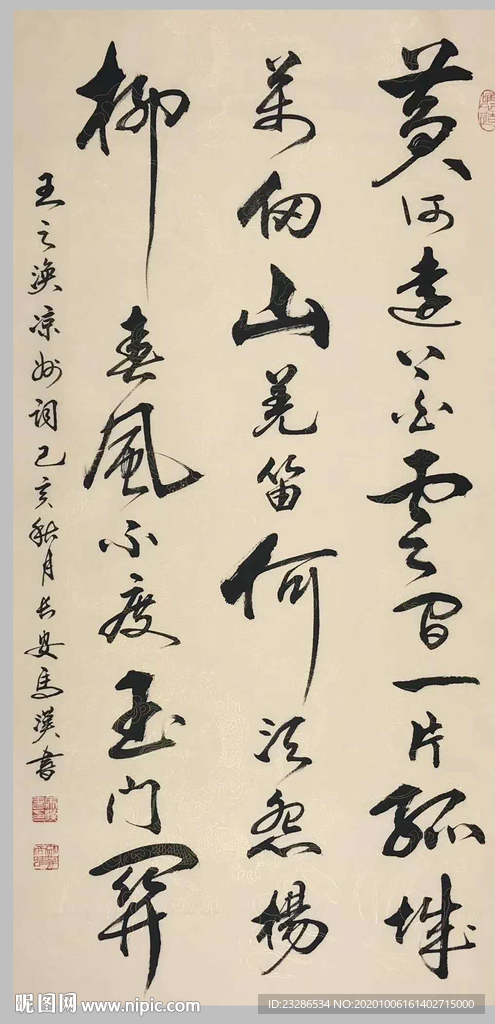 黄河遠上白雲間一片孤城
萬仞山羌笛何須怨楊
柳春風不度玉門關
王之渙凉州詞己亥秋月長安馬漢書
昵图网 www.nipic.com
ID:23286534 NO:20201006161402715000